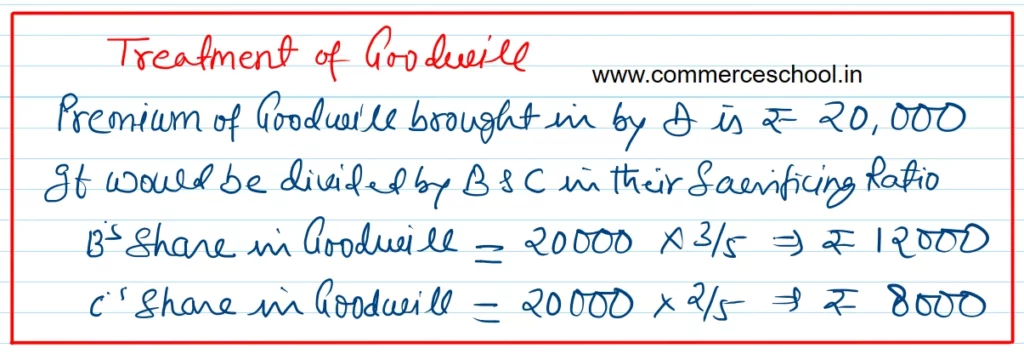 Treatment of Goodwill
www.commerceschool.in
Premium of Goodwill brought in by A is ₹ 20,000
It would be divided by B & C in their Sacrificing Ratio
B's Share in Goodwill = 20000 × 3/5 ⇒ ₹ 12000
C's Share in Goodwill = 20000 × 2/5 ⇒ ₹ 8000